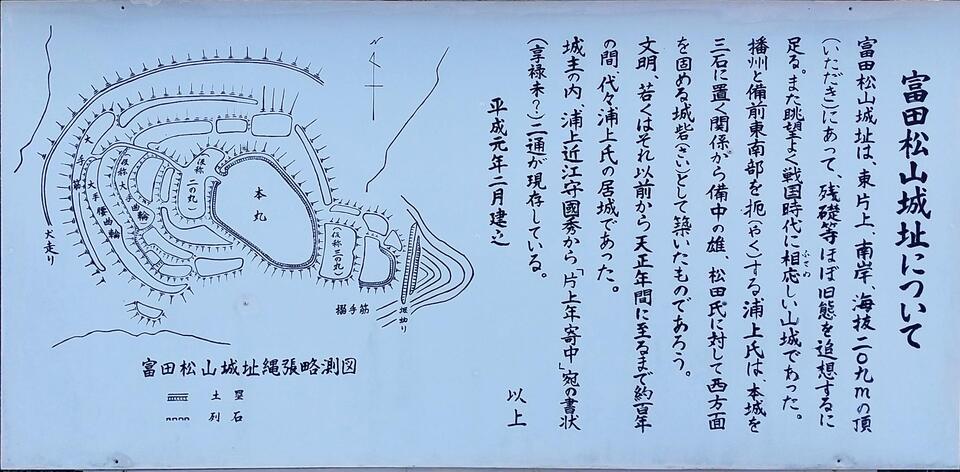 富田松山城址について
富田松山城址は、東片上、南岸、海抜二〇九mの頂
(いただき)にあって、残礎等ほぼ旧態を追想するに
足る。また眺望よく戦国時代に相応しい山城であった。
ふさわ
播州と備前東南部を扼(やく)する浦上氏は、本城を
三石に置く関係から備中の雄、松田氏に対して西方面
を固める城砦(さい)として築いたものであろう。
文明、若くはそれ以前から天正年間に至るまで約百年
の間、代々浦上氏の居城であった。
城主の内、浦上近江守國秀から「片上年寄中」宛の書状
(享禄末?)二通が現存している。
平成元年二月建之
以上
N
大手筋
仮称大手曲輪
大手櫓曲輪
仮称二の丸
本丸
仮称三の丸
犬走り
搦手筋
堀切り
富田松山城址縄張略測図
土塁
列石